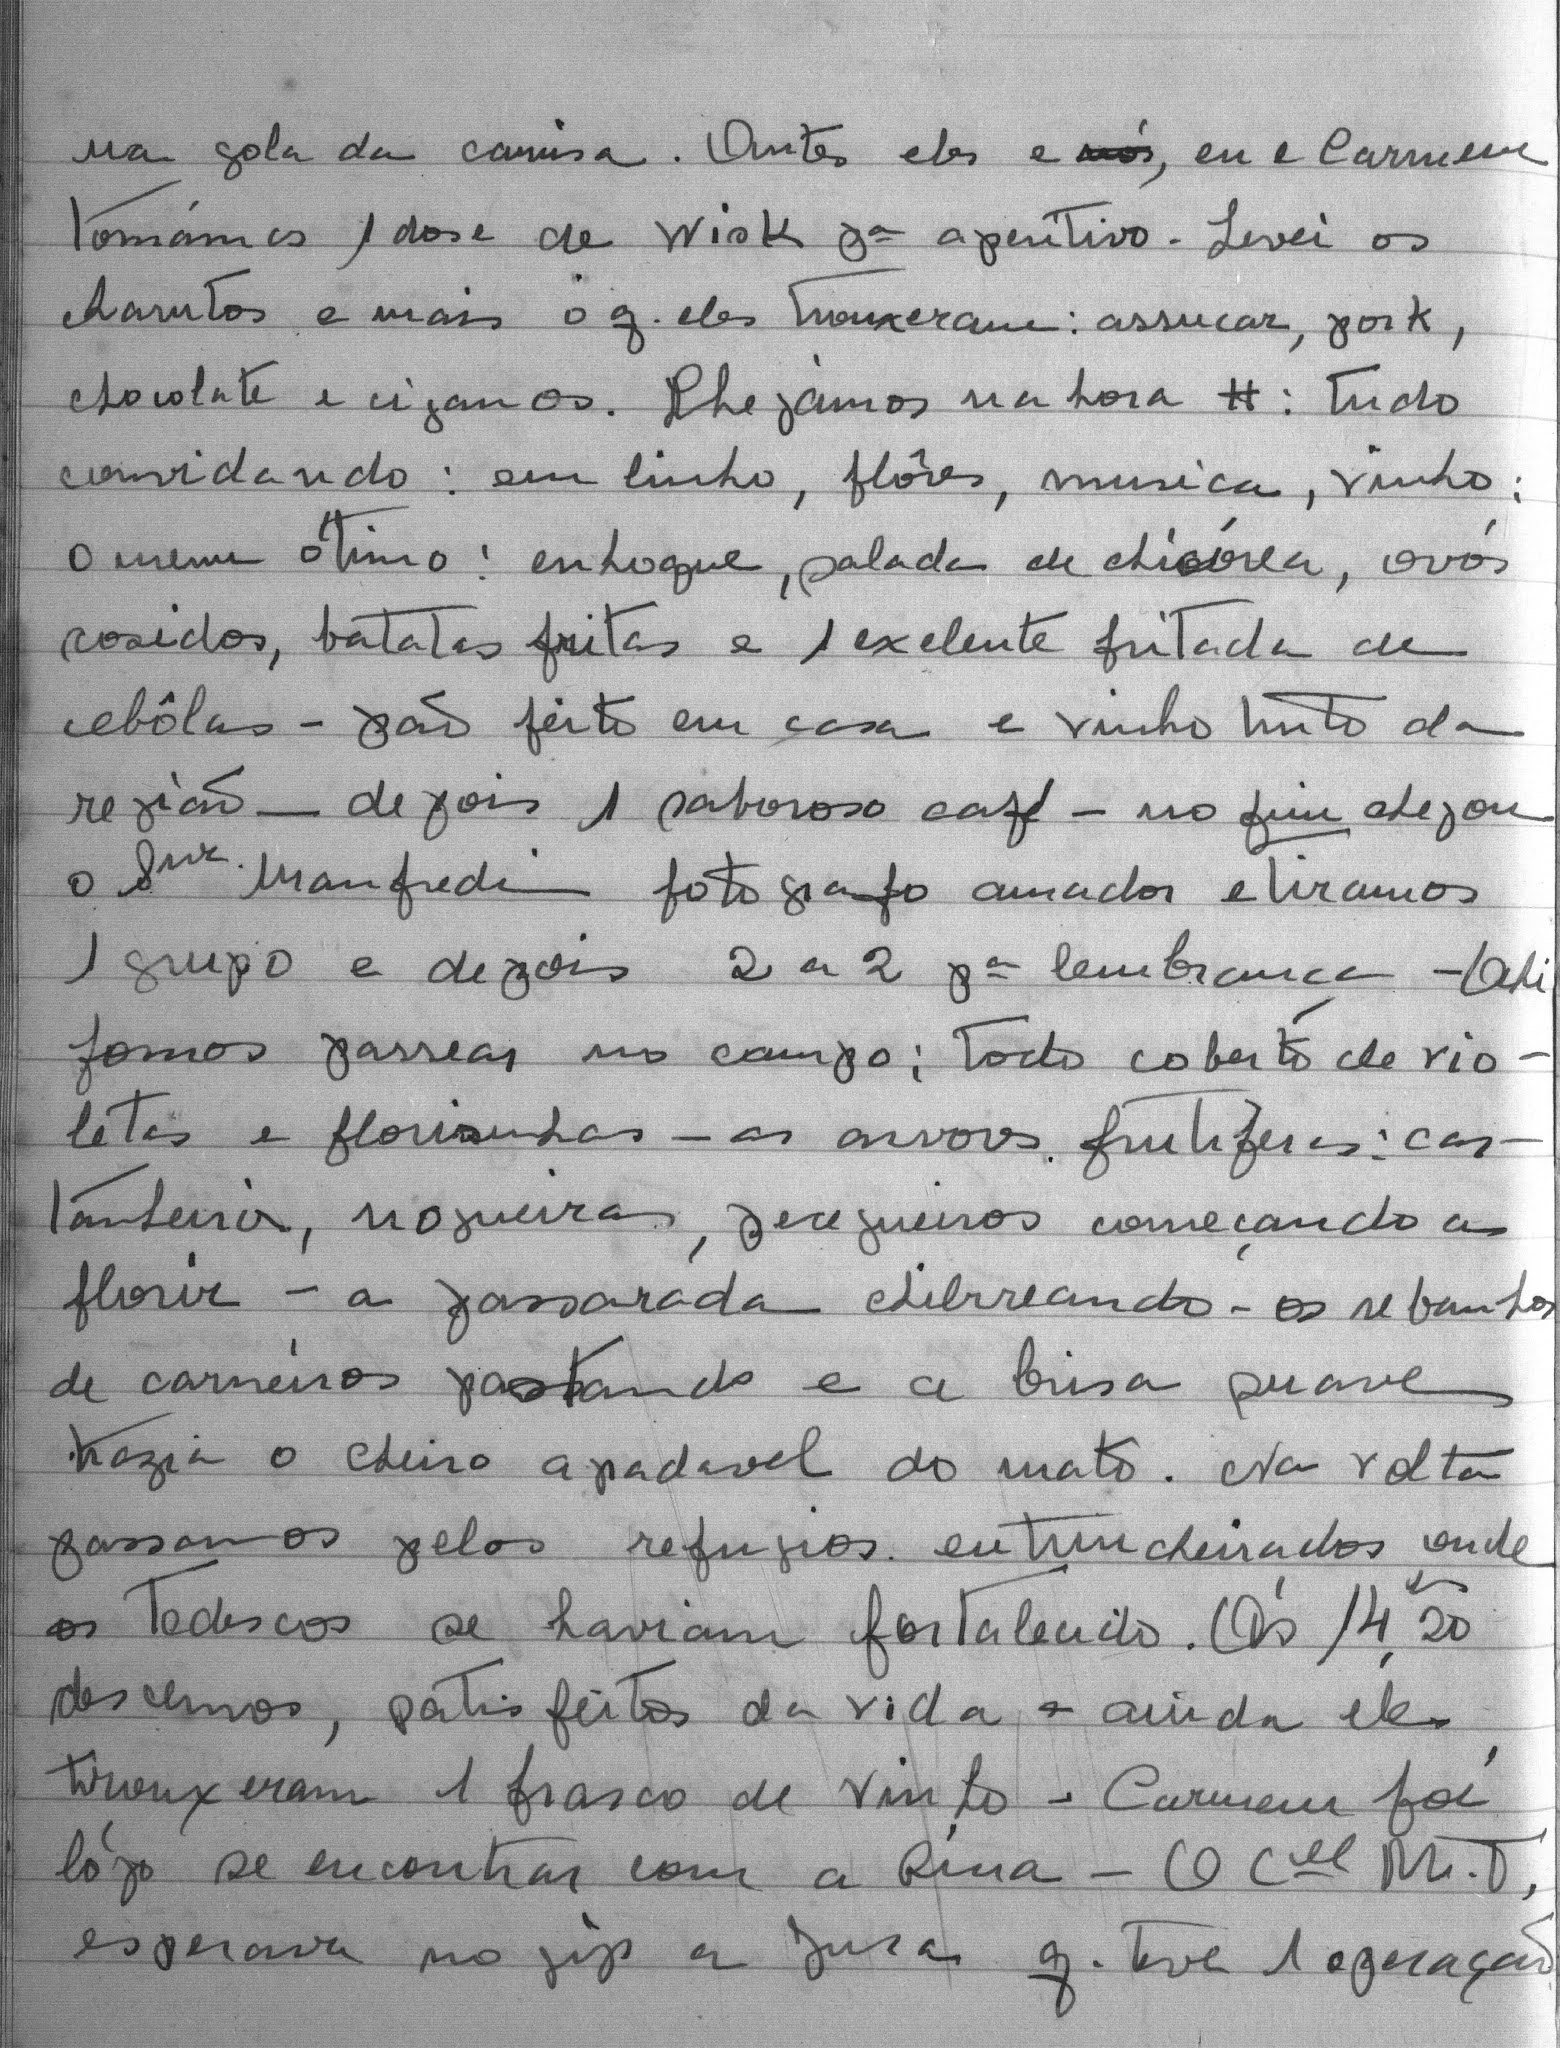 na gola da camisa. Antes eles e nós, eu e Carmem
tomámos 1 dose de Wisk pª aperitivo. Levei os
charutos e mais o q. eles trouxeram: assucar, pork,
chocolate e cigarros. Chegámos na hora H: tudo
convidando: em linho, flôres, musica, vinho;
o menu ótimo: enhoque, salada de chicórea, ovos
cosidos, batatas fritas e 1 exelente fritada de
cebôlas - pão feito em casa e vinho tinto da
região - depois 1 saboroso café - no fim chegou
o Snr. Manfredi fotografo amador e tiramos
1 grupo e depois 2 a 2 pª lembrança -
fomos passear no campo; todo coberto de vio-
letas e florisinhas - as arvores frutiferas: cas-
tanheira, nogueiras, pecegueiros começando a
florir - a passarada chilrreando - os rebanhos
de carneiros pastando e a brisa suave
trazia o cheiro agradavel do mato. Na volta
passamos pelos refugios entrincheirados onde
os Tedescos se haviam fortalecido. Ás 14,20
descemos, satisfeitos da vida e ainda eles
trouxeram 1 frasco de vinho - Carmem foi
lógo se encontrar com a Rina - O Cel M.T,
esperava no jip a Jura q. teve 1 operação